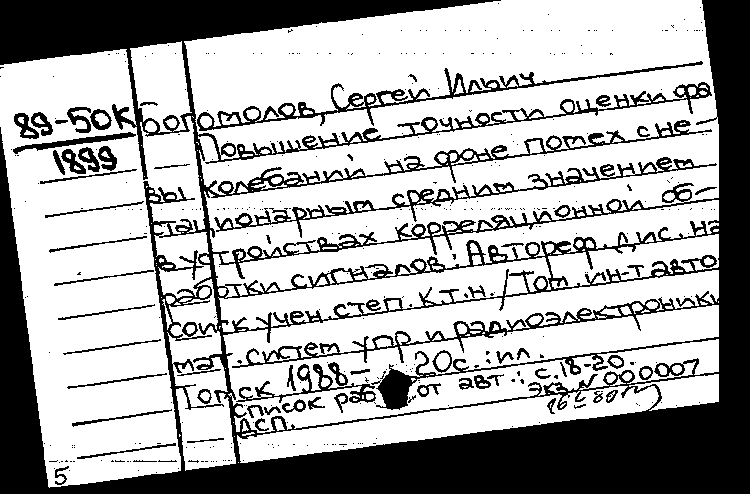 89-50К
1899
Богомолов, Сергей Ильич.
Повышение точности оценки фа
зы колебаний на фоне помех с не-
стационарным средним значением
в устройствах корреляционной об-
работки сигналов: Автореф. дис. на
соиск. учен. степ. к.т.н. / Том. ин-т авто
мат. систем упр. и радиоэлектроники
Томск, 1988- 20с.: ил.
список раб от авт.: с.18-20.
ДСП. экз. N 000007
5